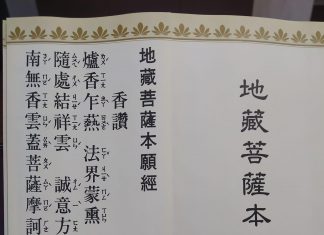 地藏菩薩本
地藏菩薩本願經
香讚
爐香乍爇 法界蒙熏
隨處結祥雲 誠意方
南無香雲蓋菩薩摩訶